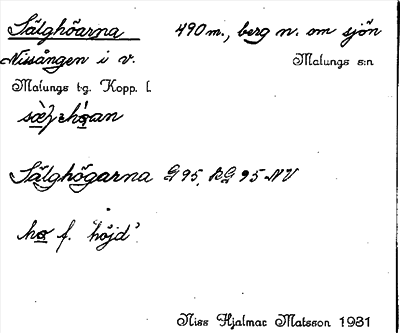 Sälghöarna 490 m., berg n. om sjön
Nissången i v. Malungs s:n
Malungs tg. Kopp. l.
Sälghögarna G 95, BG 95 NV
hø f. 'höjd'
Niss Hjalmar Matsson 1931